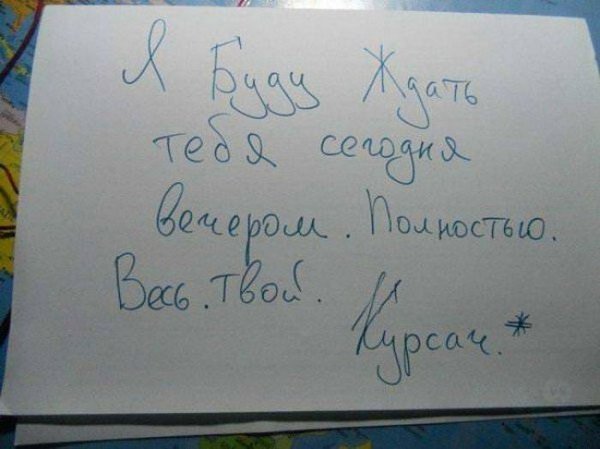 Я Буду Ждать
тебя сегодня
вечером. Полностью.
Весь. Твой.
Курсач.*